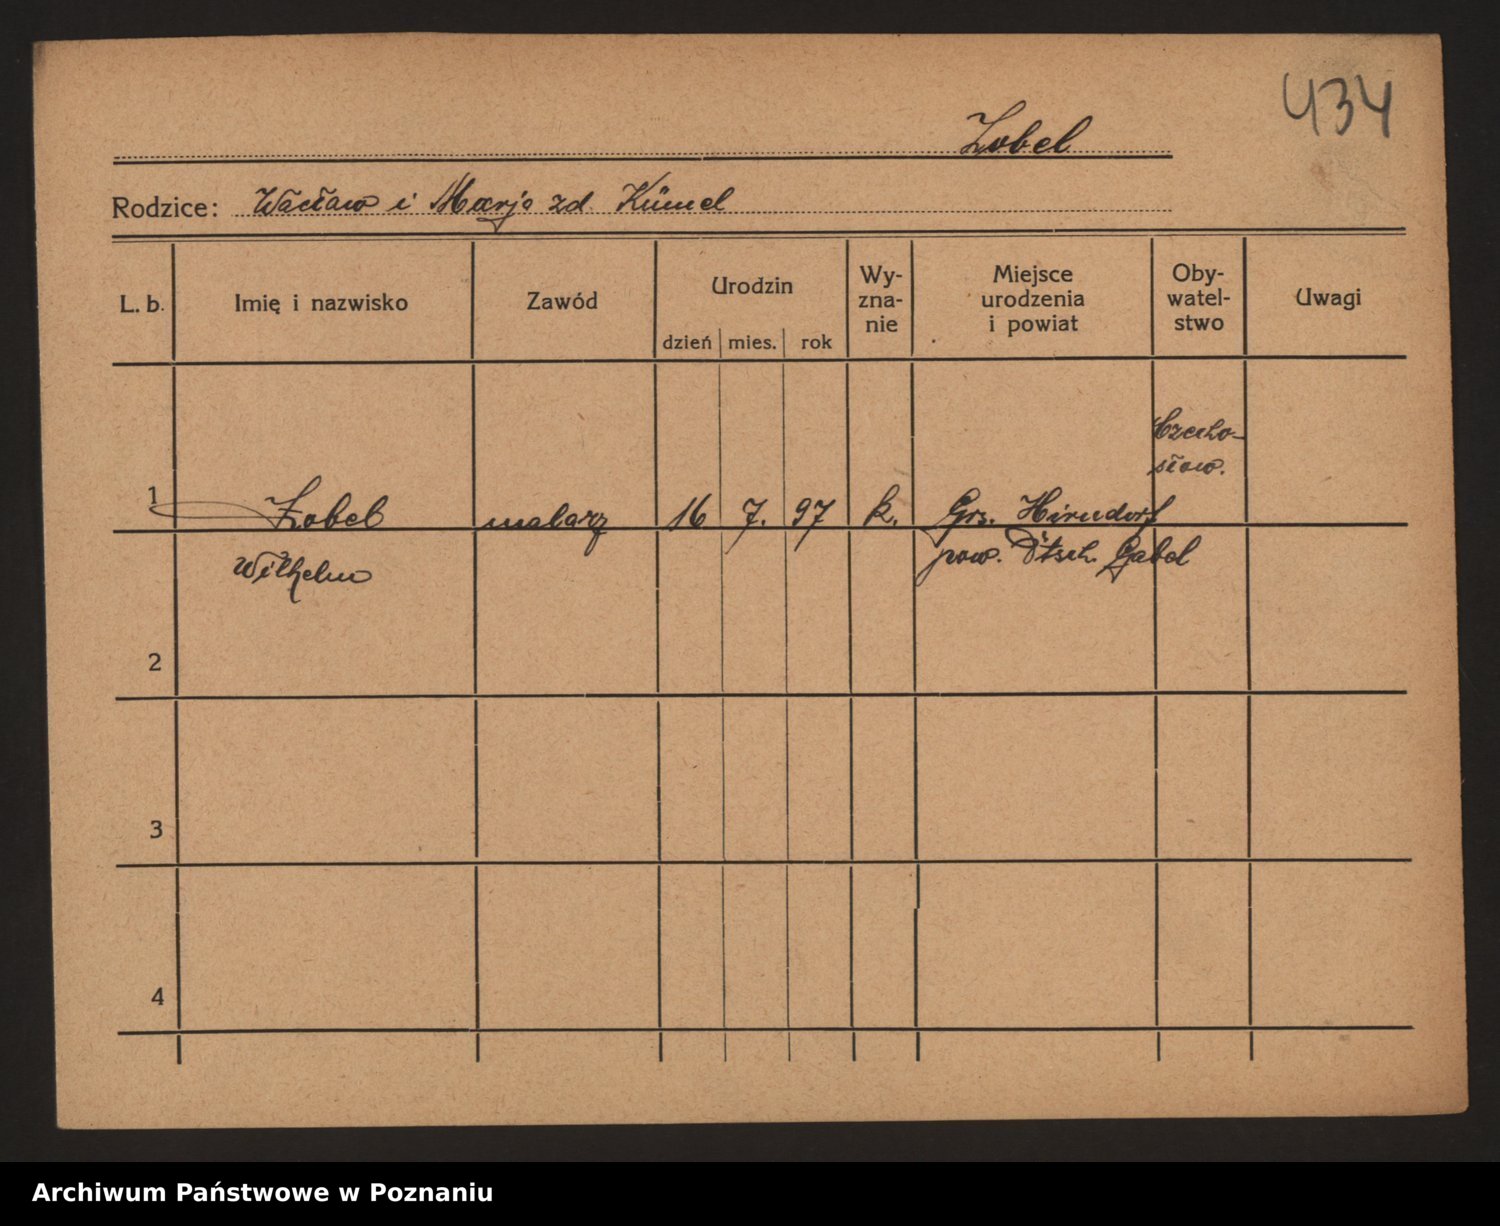 434
Zobel
Rodzice: Wacław i Marja zd. Kümel
L. b. Imię i nazwisko Zawód Urodzin dzień mies. rok Wy-zna-nie Miejsce urodzenia i powiat Oby-watel-stwo Uwagi
Czecho-
słow.
1 Zobel malarz 16 7. 97 k. Grs. Hirndorf
Wilhelm pow. Dtsch. Gabel
2
3
4
Archiwum Państwowe w Poznaniu